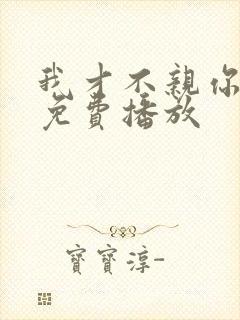 我才不親你
免費播放
寶寶淳-